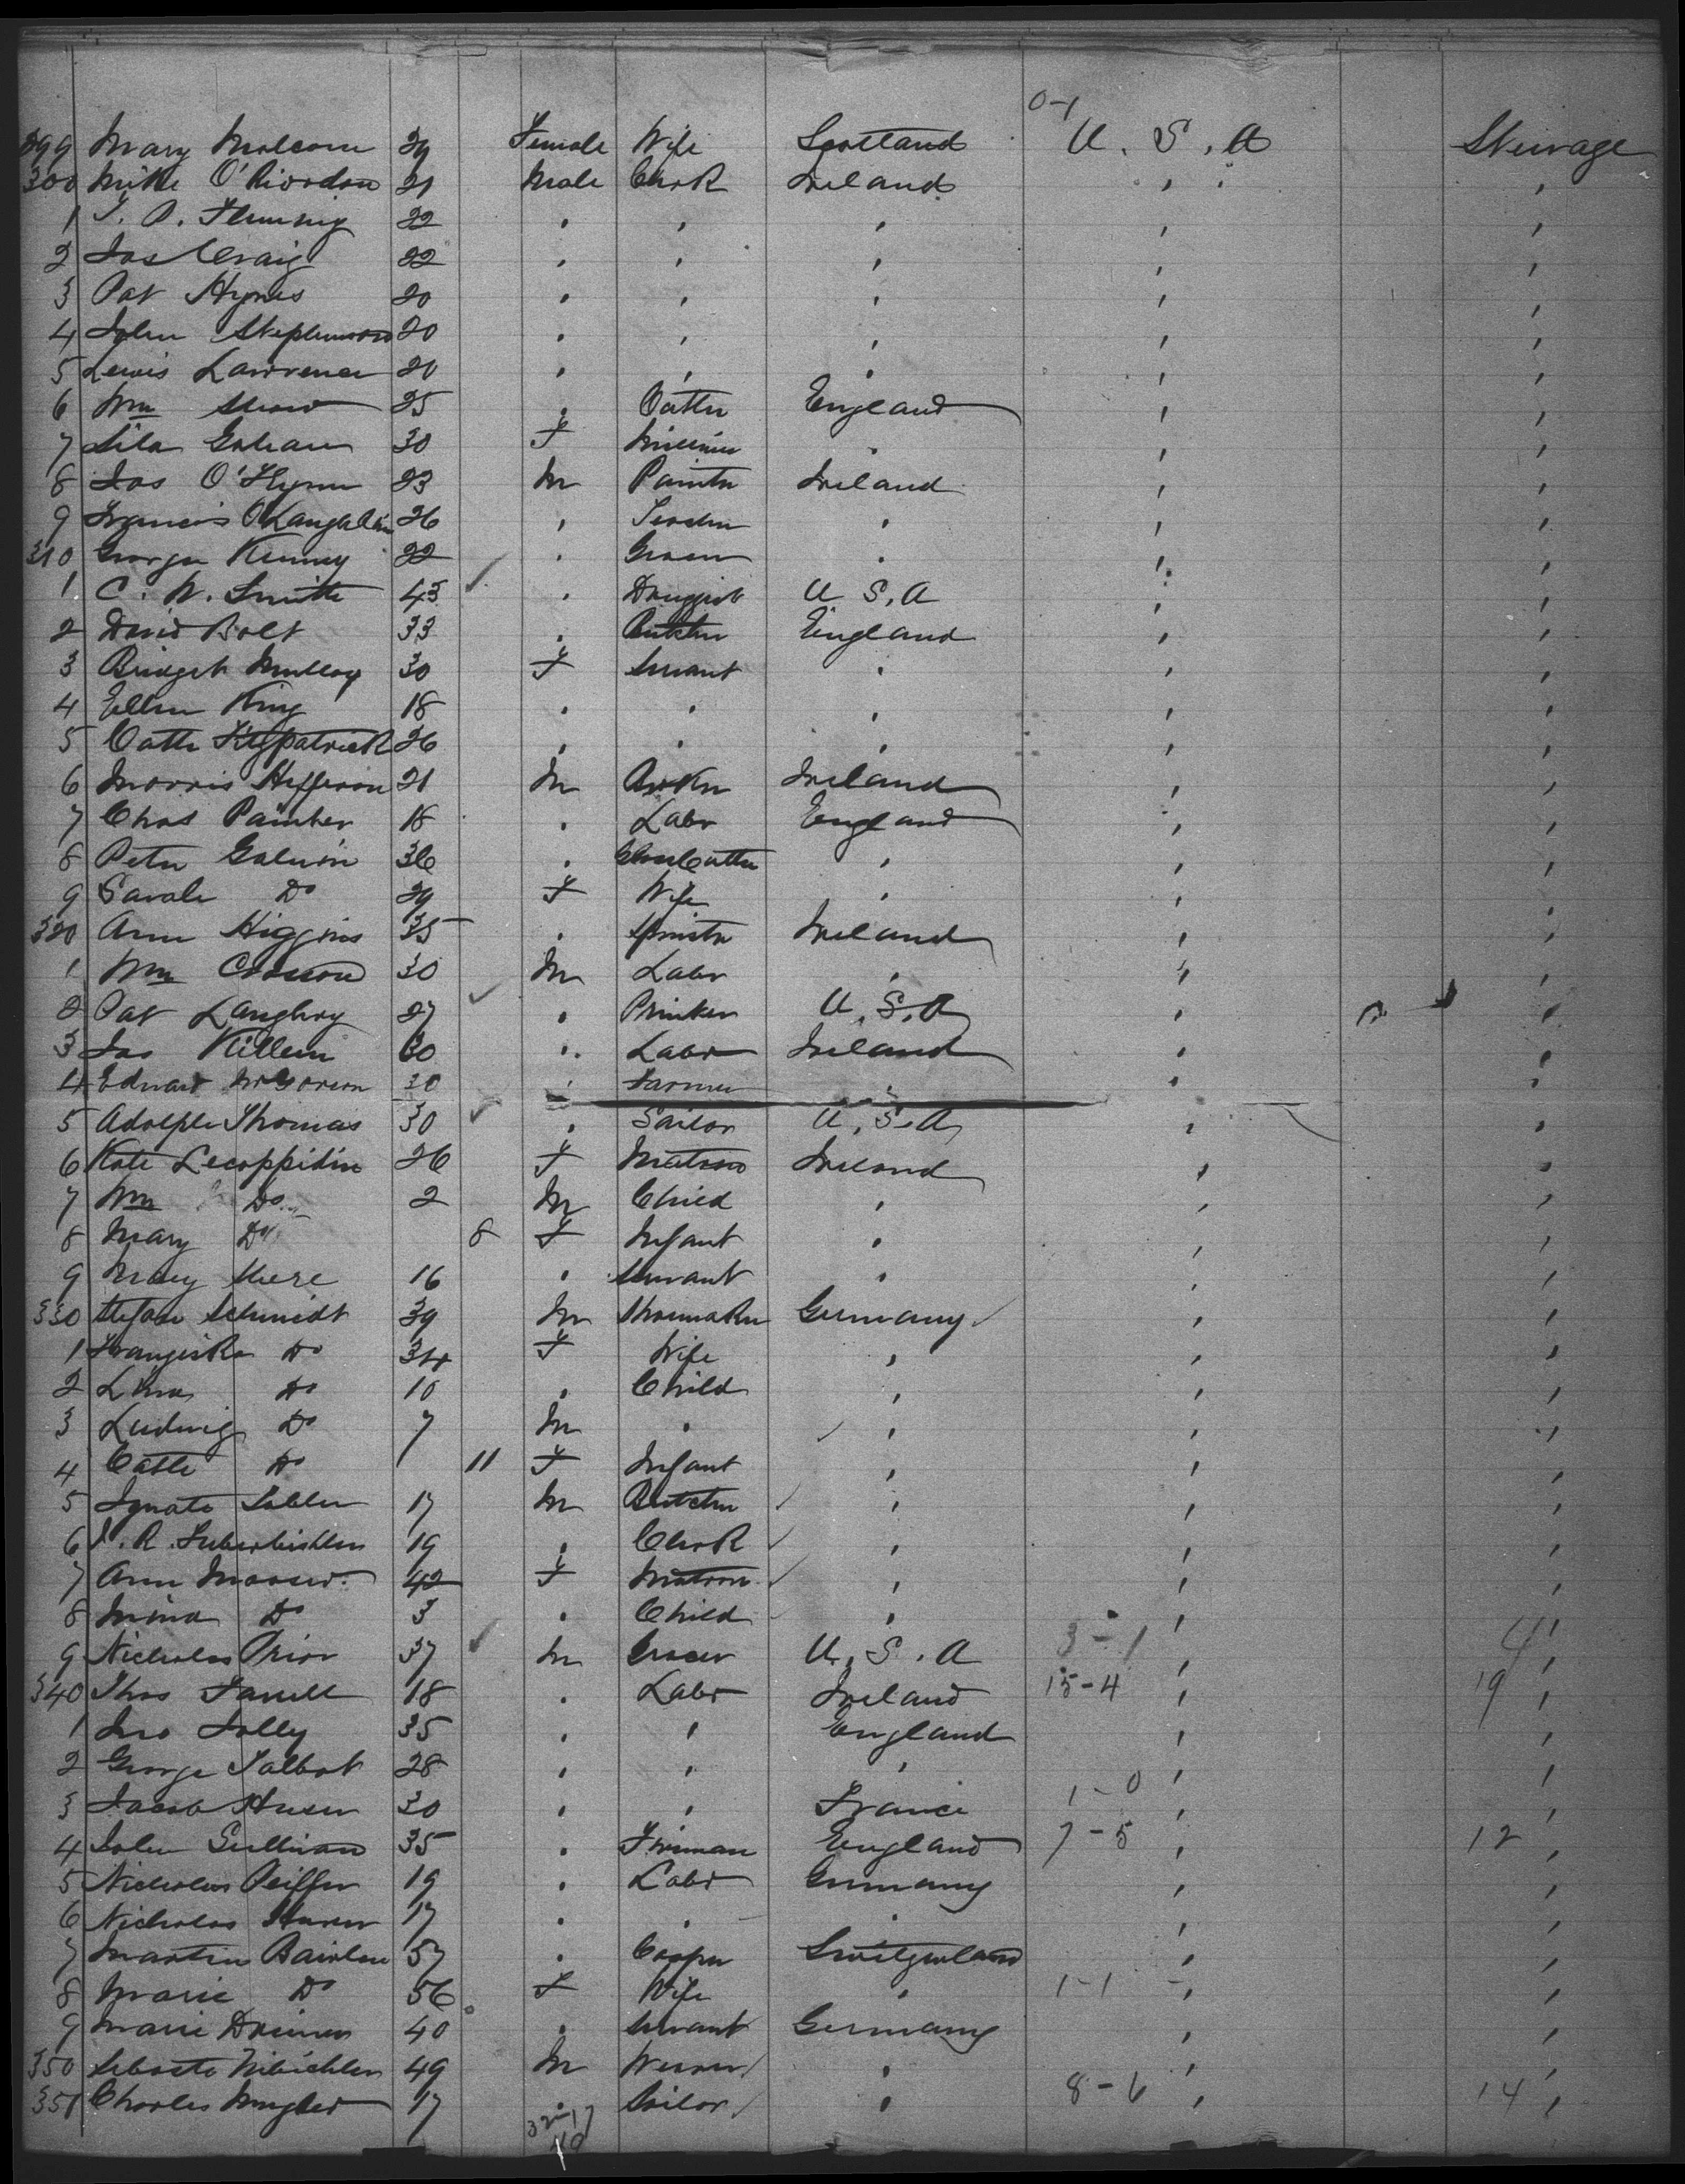 0-1
299 Mary Malcom 29 Female Wife Scotland U. S. A Steerage
300 Mike O'Riordan 21 Male Clerk Ireland " "
1 T. A. Fleming 22 " " " " "
2 Jas Craig 22 " " " " "
3 Pat Hynes 20 " " " " "
4 John Stephenson 20 " " " " "
5 Lewis Lawrence 20 " " " " "
6 Wm Shaw 25 " England " "
7 30 F Milliner " " "
8 Jas O'Flynn 23 M Painter Ireland " "
9 Francis 26 " " " "
310 George Kenney 22 " Grocer " " "
1 C. W. Smith 43 ✓ " Druggist U S. A " "
2 David Bolt 33 " Butcher England " "
3 Bridget Mulloy 30 F Servant " " "
4 Ellen King 18 " " " " "
5 Cath Fitzpatrick 26 " " " " "
6 Morris Hefferon 21 M Ireland " "
7 Chas Painter 18 " Labr England " "
8 Peter Galvin 36 " Glass Cutter " " "
9 Sarah Do 29 F Wife " " "
320 Ann Higgins 35 " Spinster Ireland " "
1 Wm 30 M Labr " " "
2 Pat Langhry 27 ✓ " Printer U. S. A " "
3 Jas Killen 30 " Labr Ireland " "
4 Edward McGovern 30 " Farmer " " "
5 Adolph Thomas 30 ✓ " Sailor U. S. A " "
6 Kate Lecoppidin 26 F Matron Ireland " "
7 Wm Do 2 M Child " " "
8 Mary Do 8 F Infant " " "
9 Mary 16 " Servant " " "
330 Stefan Schmidt 39 M Shoemaker Germany ✓ " "
1 Franziska Do 34 F Wife " " "
2 Lina Do 10 " Child " " "
3 Ludwig Do 7 M " ✓ " " "
4 Cath Do 11 F Infant " " "
5 Ignatz 17 M Butcher ✓ " " "
6 19 " Clerk ✓ " " "
7 Ann Moser 42 F Matron ✓ " " "
8 Mina Do 3 " Child ✓ " " "
9 Nicholas Prior 37 ✓ M Grocer U. S. A 3-1 " 4 "
340 Thos Farrell 18 " Labr Ireland 15-4 " 19 "
1 Jno Jolly 35 " " England " "
2 George Talbot 28 " " " " "
3 Jacob Huser 30 " " France 1-0 " "
4 John Sullivan 35 " Fireman England 7-5 " 12 "
5 Nicholas Peiffer 19 " Labr Germany " "
6 Nicholas 17 " " " " "
7 Martin 57 " Cooper Switzerland " "
8 Marie Do 56 F Wife " 1-1 " "
9 Marie 40 " Servant Germany " "
350 49 M Weaver ✓ " " "
351 Charles 17 " Sailor ✓ " 8-6 " 14 "
32-17